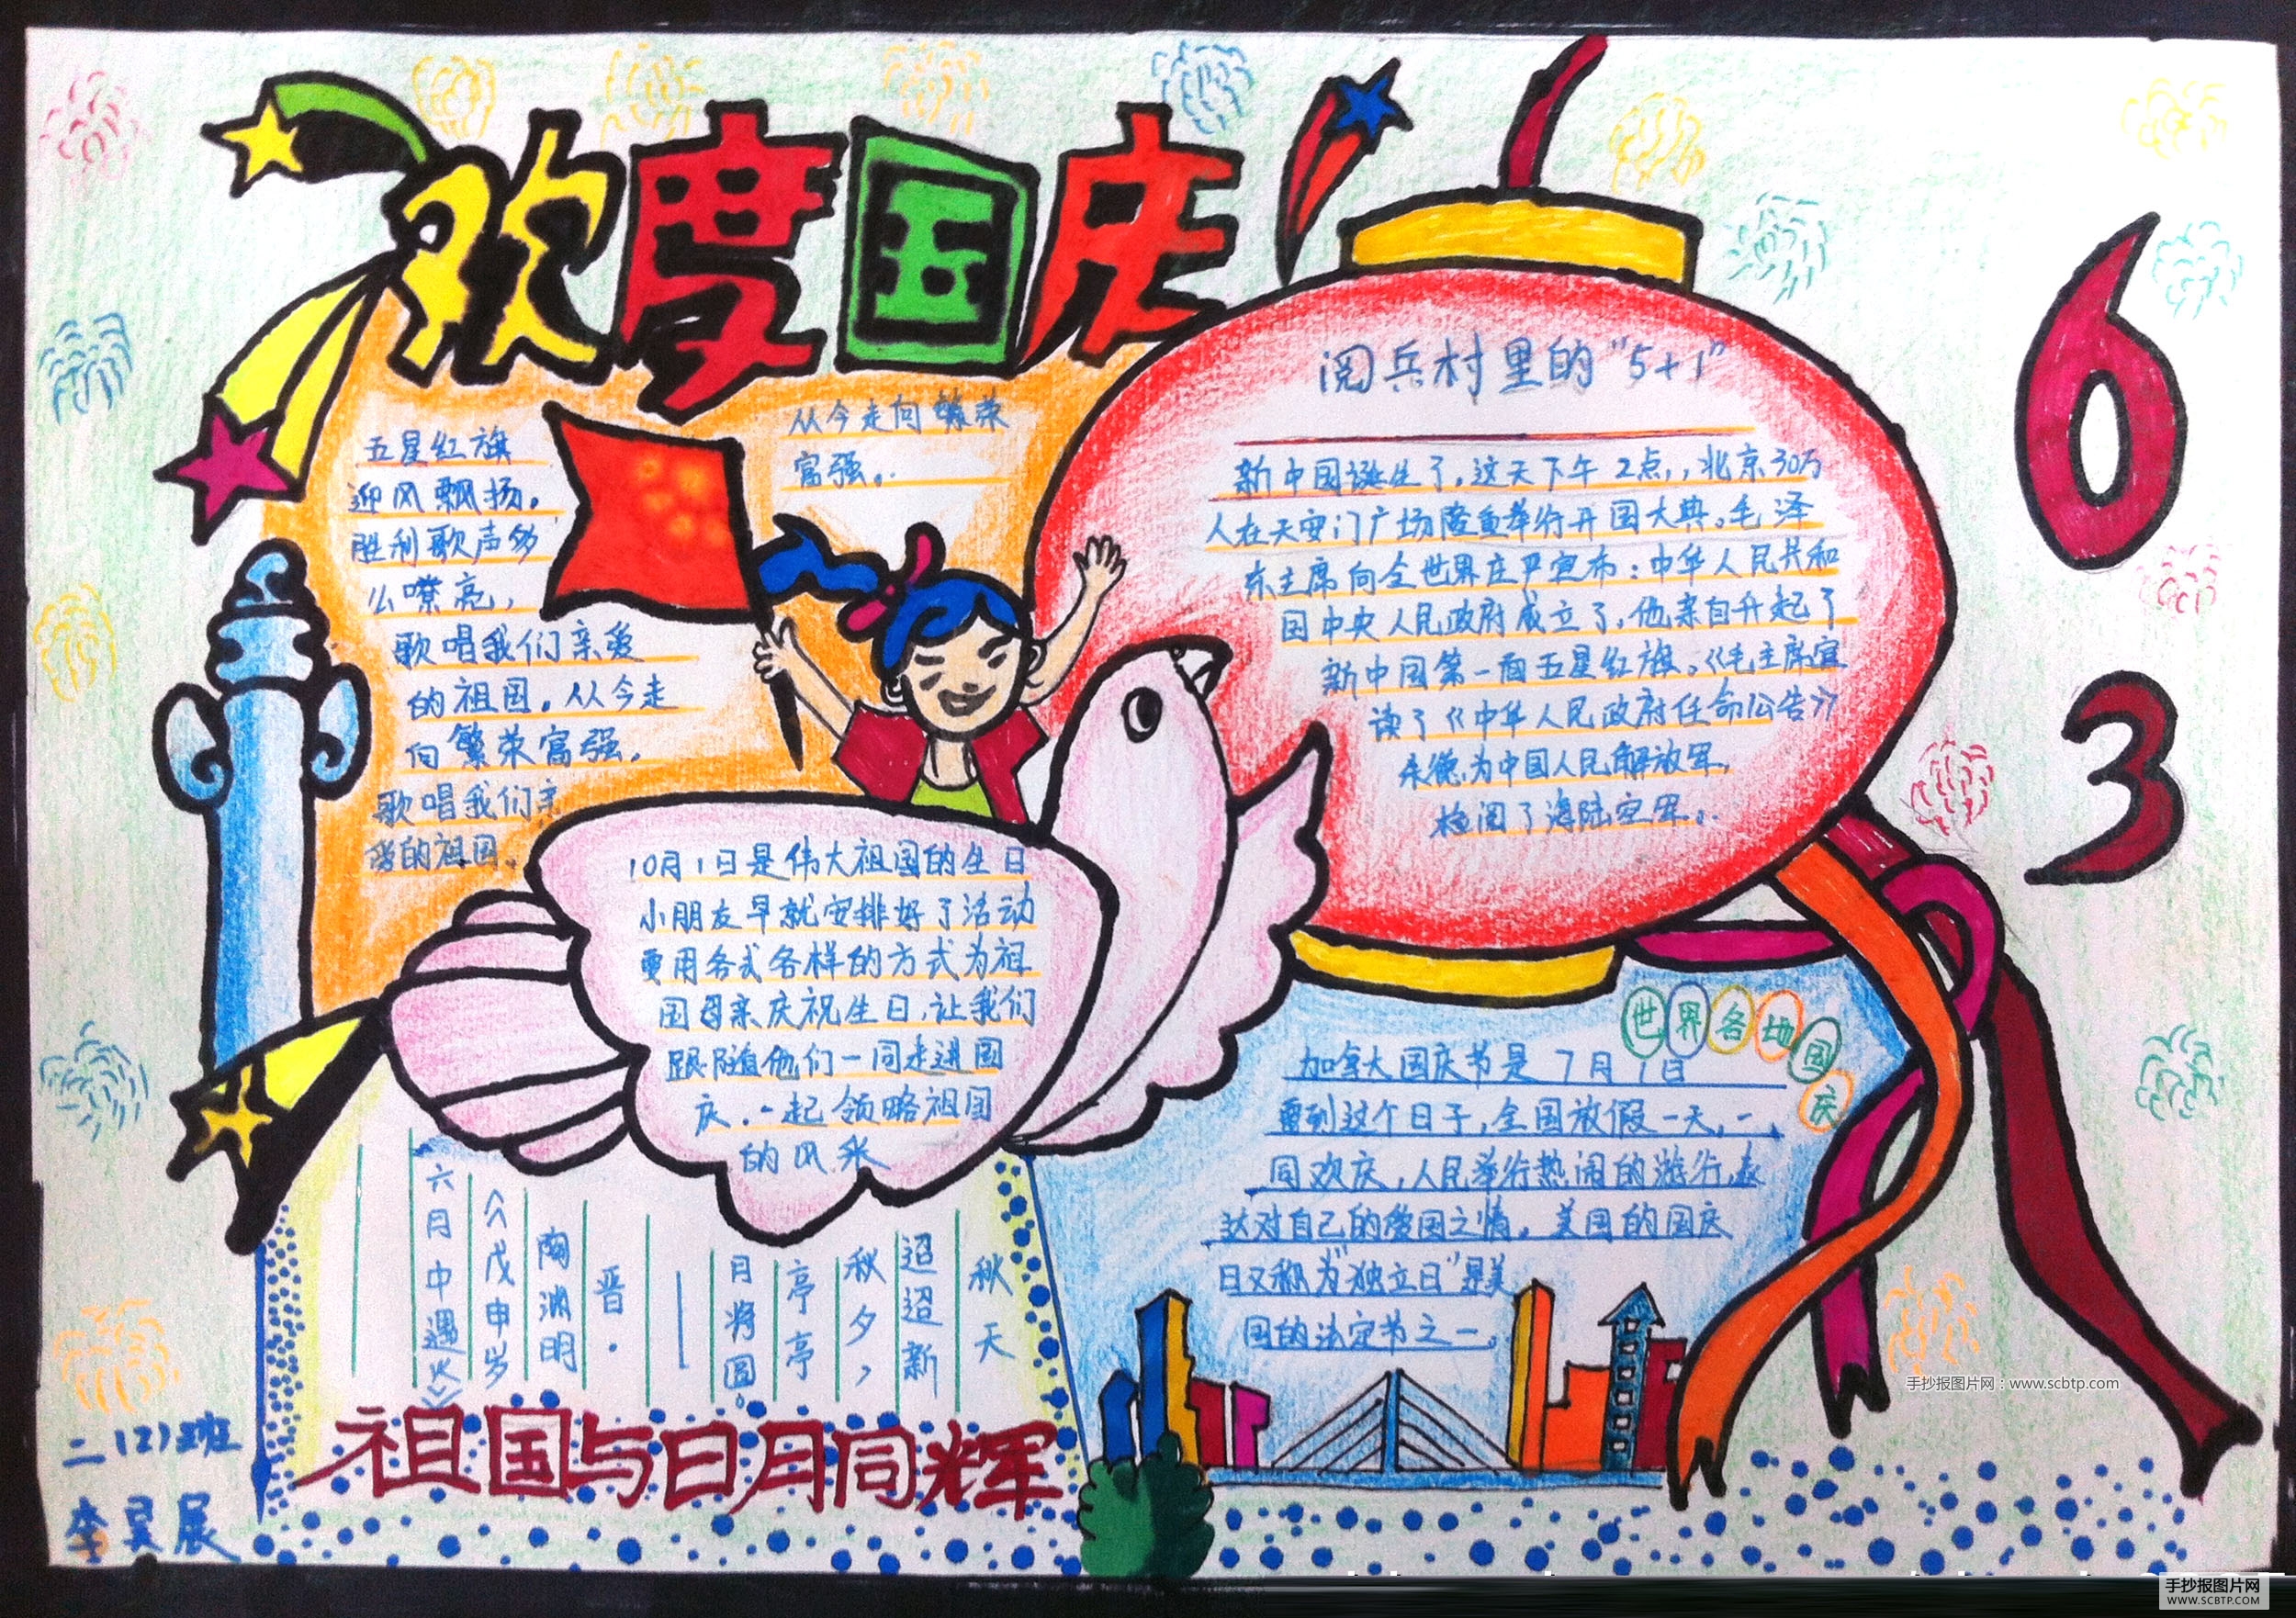 欢度国庆
63
五星红旗
迎风飘扬。
胜利歌声多
么嘹亮，
歌唱我们亲爱
的祖国。从今走
向繁荣富强。
歌唱我们亲
爱的祖国。
从今走向繁荣
富强。
阅兵村里的"5+1"
新中国诞生了，这天下午2点，，北京30万
人在天安门广场隆重举行开国大典。毛泽
东主席向全世界庄严宣布：中华人民共和
国中央人民政府成立了，他亲自升起了
新中国第一面五星红旗。《毛主席宣
读了《中华人民政府任命公告》
朱德为中国人民解放军，
检阅了海陆空军。
10月1日是伟大祖国的生日
小朋友早就安排好了活动
要用各式各样的方式为祖
国母亲庆祝生日，让我们
跟随他们一同走进国
庆．一起领略祖国
的风采
世界各地国庆
加拿大国庆节是7月1日
要到这个日子，全国放假一天，一
同欢庆，人民举行热闹的游行，表
达对自己的爱国之情。美国的国庆
日又称为"独立日"是美
国的法定节之一。
秋天
迢迢新
秋夕，
亭亭
月将圆。
——
晋·
陶渊明
《戊申岁
六月中遇火》
祖国与日月同辉
二（2）班
李昊展
手抄报图片网：www.scbtp.com
手抄报图片网
WWW.SCBTP.COM